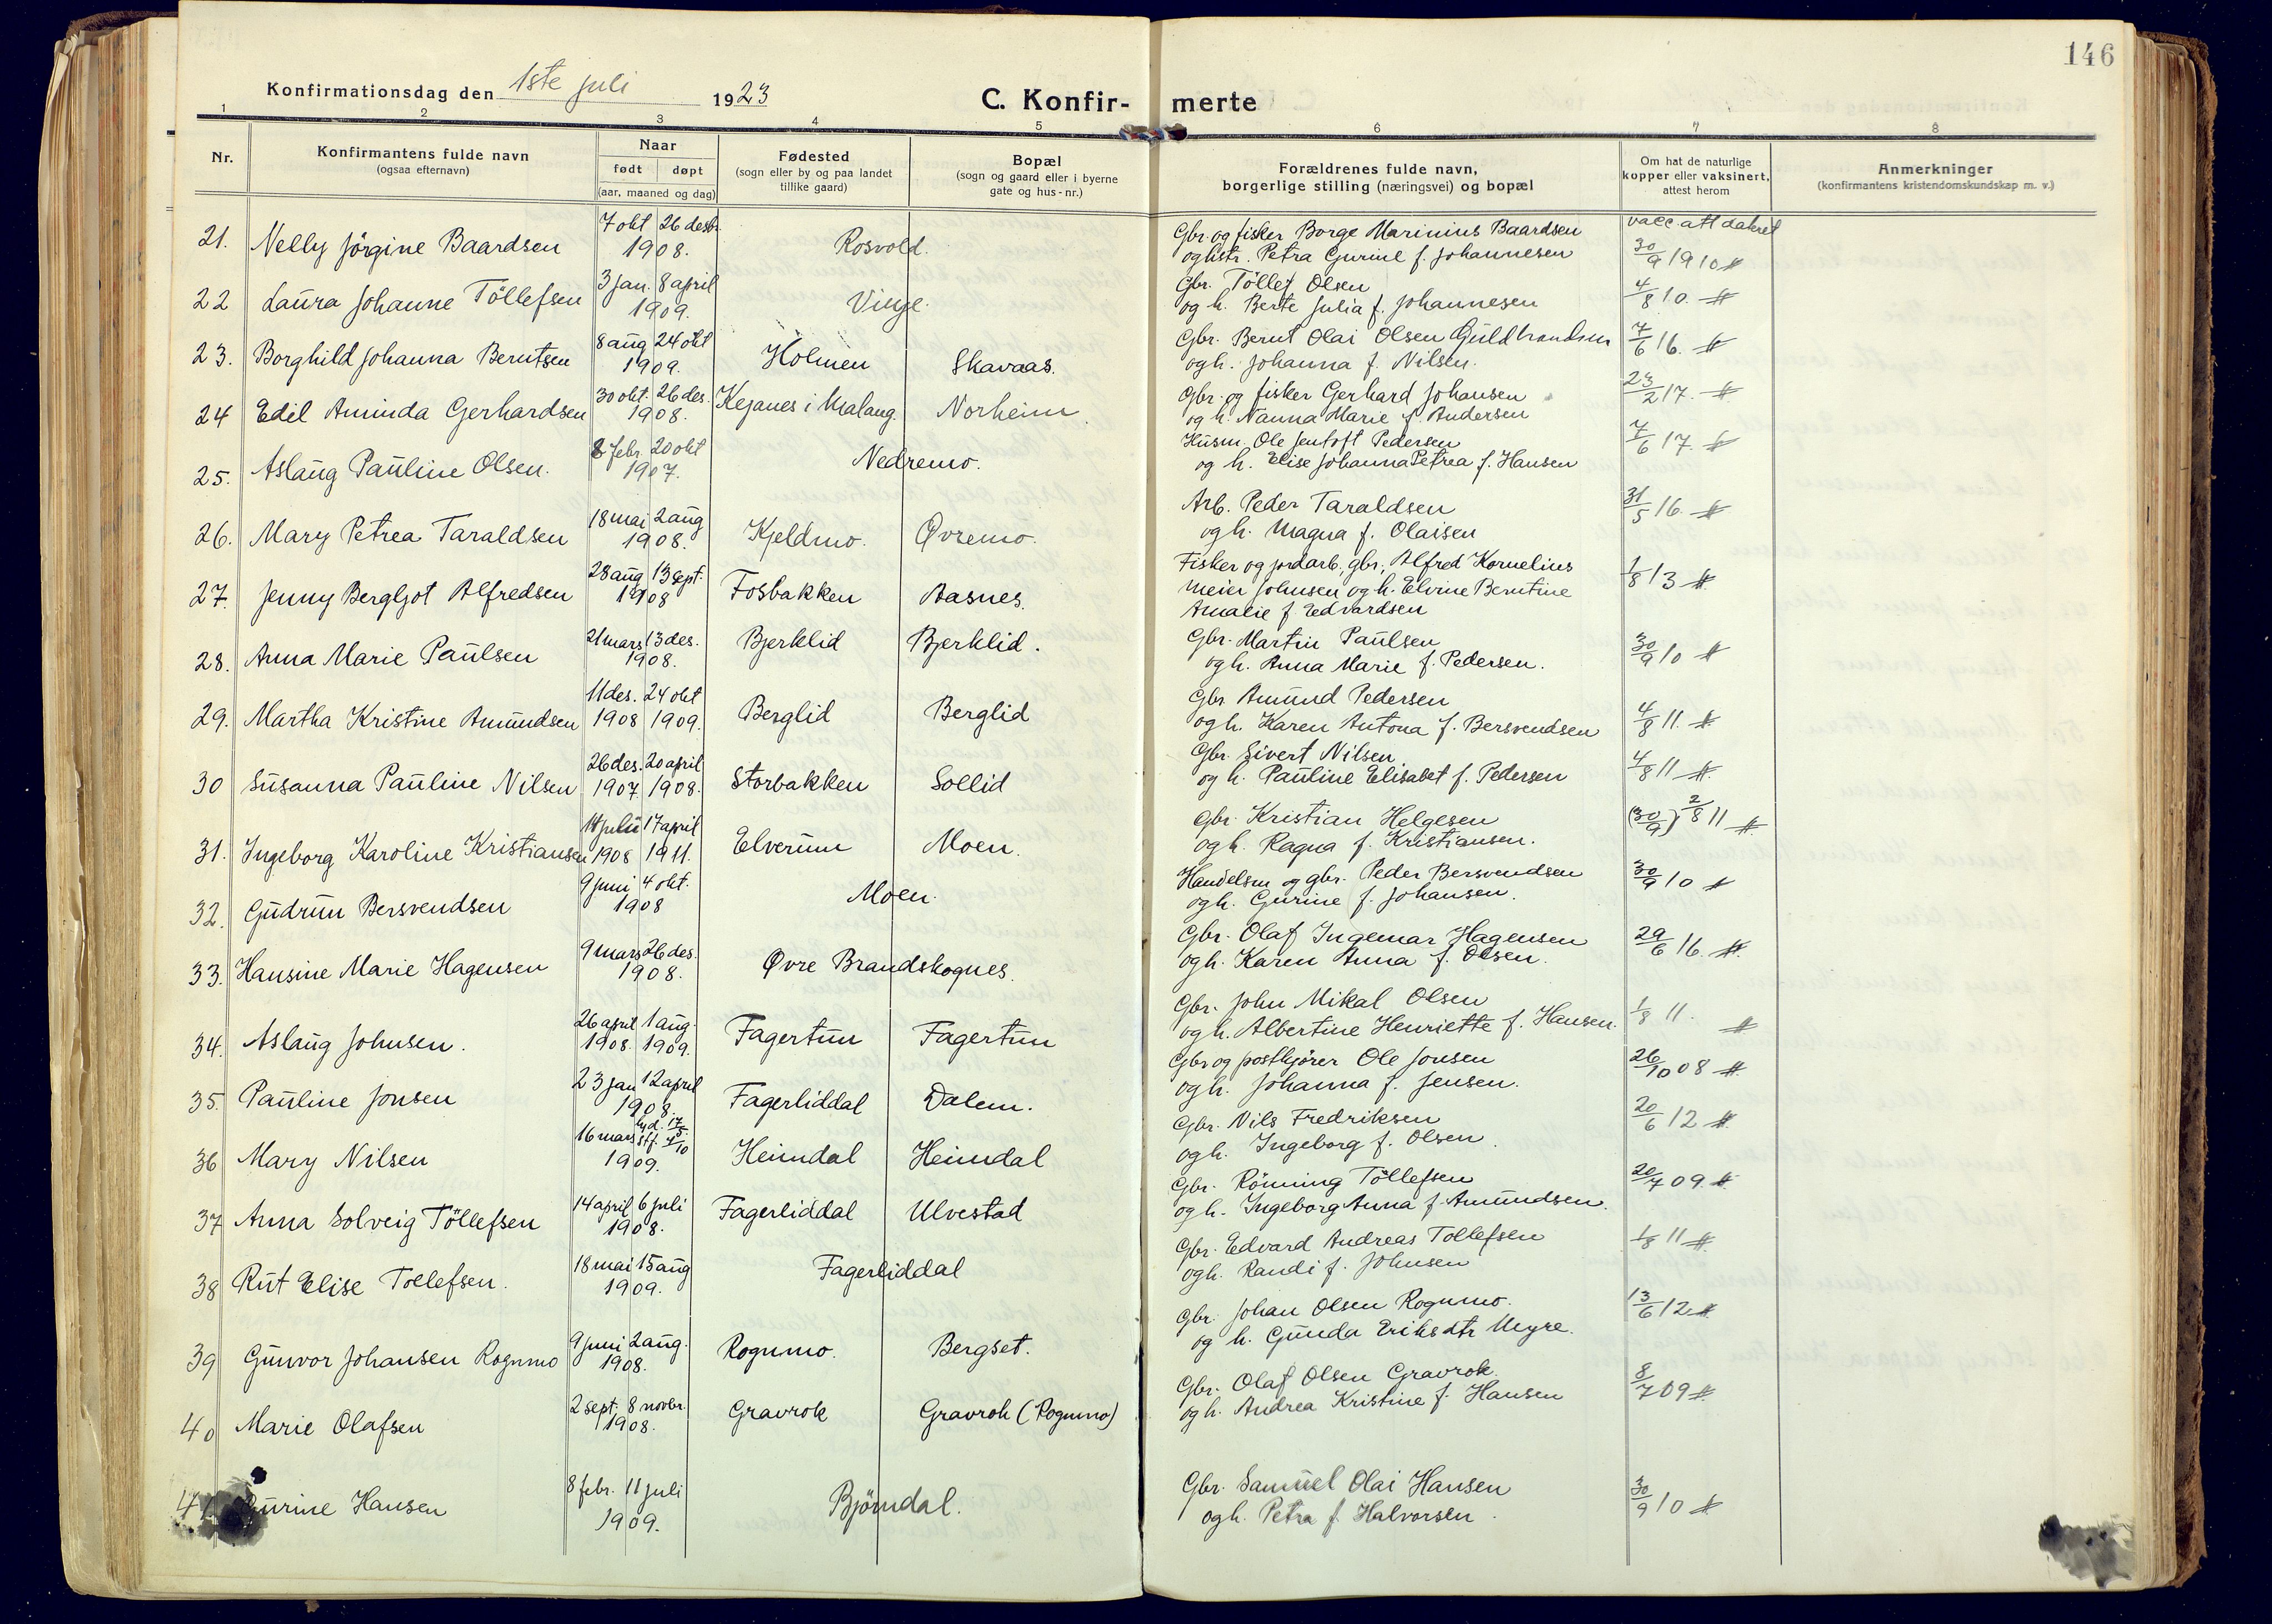 146
Konfirmationsdag den 1ste juli 1923
C. Konfir- merte
1 2 3 4 5 6 7 8
Nr.
Konfirmantens fulde navn
(ogsaa efternavn)
Naar
født døpt
(aar, maaned og dag)
Fødested
(sogn eller by og paa landet
tillike gaard)
Bopæl
(sogn og gaard eller i byerne
gate og hus-nr.)
Forældrenes fulde navn,
borgerlige stilling (næringsvei) og bopæl
Om hat de naturlige
kopper eller vaksinert,
attest herom
Anmerkninger
(konfirmantens kristendomskundskap m. v.)
21. Nelly Jörgine Baardsen 7 okt 26 desbr. 1908. Rosvold. Gbr. og fisker Borge Marinius Baardsen vacc. att dateret
og hstr. Petra Gurine f. Johannesen 30/9 1910
22 Laura Johanne Töllefsen 3 jan. 8 april 1909. Vinge. Gbr. Töllef Olsen
og h. Berte Julia f. Johannesen 4/8 10.
23. Borghild Johanna Berntsen 8 aug 24 okt 1909. Holmen Skavaas. Gbr. Bernt Olai Olsen Guldbrandsen 7/6 16.
og h. Johanna f. Nilsen.
24 Edel Aminda Gerhardsen 30 okt. 26 des. 1908. i Malang. Norheim Gbr. og fisker Gerhard Johansen 23/2 17.
og h. Nanna Marie f. Andersen
25. Aslaug Pauline Olsen. 8 febr. 20 okt 1907. Nedremo. Husm. Ole Jentoft Pedersen 7/6 17.
og h. Elise Johanna Petrea f. Hansen
26. Mary Petrea Taraldsen 18 mai 2 aug 1908. Kjeldmo. Øvremo. Arb. Peder Taraldsen 31/5 16.
og h. Magna f. Olaisen
27. Jenny Bergljot Alfredsen 28 aug 13 sept. 1908 Fosbakken Aasnes. Fisker og jordarb., gbr., Alfred Kornelius 1/8 13
Meier Johnsen og h. Elvine Berntine
Amalie f. Edvardsen
28. Anna Marie Paulsen 21 mars 13 des. 1908. Bjerklid Bjerklid. Gbr. Martin Paulsen 30/9 10
og h. Anna Marie f. Pedersen.
29. Martha Kristine Amundsen 11 des. 1908 24 okt 1909. Berglid Berglid Gbr. Amund Pedersen
og h. Karen Antona f. Bersvendsen 4/8 11.
30 Susanna Pauline Nilsen 26 des. 1907. 20 april 1908. Storbakken Sollid Gbr. Sivert Nilsen 4/8 11
og h. Pauline Elisabet f. Pedersen
31. Ingeborg Karoline Kristiansen 1908 17 april 1911. Elverum Moen. Gbr. Kristian Helgesen (30/9) 2/8 11
og h. Ragna f. Kristiansen.
32. Gudrun Bersvendsen 9 juni 4 okt. 1908 Moen. Handelsm og gbr. Peder Bersvendsen 30/9 10
og h. Gurine f. Johansen.
33. Hansine Marie Hagensen 9 mars 26 des. 1908. Øvre Brandskognes. Gbr. Olaf Ingemar Hagensen 29/6 16.
og h. Karen Anna f. Olsen.
34. Aslaug Johnsen. 26 april 1908. 1 aug. 1909. Fagertun Fagertun Gbr. John Mikal Olsen 1/8 11.
og h. Albertine Henriette f. Hansen.
35. Pauline Jonsen 23 jan 12 april 1908. Fagerliddal Dalem. Gbr. og postkjörer Ole Jonsen 26/10 08
og h. Johanna f. Jensen.
36 Mary Nilsen 16 mars hjd. 17/5 stf. 4/10 1909. Heimdal Heimdal Gbr. Nils Fredriksen 20/6 12
og h. Ingeborg f. Olsen.
37 Anna Solveig Töllefsen 14 april 6 juli 1908. Fagerliddal Ulvestad Gbr. Rönning Töllefsen 20/7 09.
og h. Ingeborg Anna f. Amundsen.
38 Rut Elise Tollefsen. 18 mai 15 aug 1909. Fagerliddal Gbr. Edvard Andreas Tollefsen 1/8 11
og h. Randi f. Johnsen
39 Gunvor Johansen Rognmo 9 juni 2 aug. 1908. Rognmo. Bergset. Gbr. Johan Olsen Rognmo. 13/6 12
og h. Gunda Eriksdtr Myre.
40 Marie Olafsen 2 sept. 8 novbr. 1908. Gravrok Gravrok (Rognmo) Gbr. Olaf Olsen Gravrok. 8/7 09
og h. Andrea Kristine f. Hansen
41 Gurine Hansen 8 febr. 11 juli 1909. Björndal. Gbr. Samuel Olai Hansen 30/9 10
og h. Petra f. Halvorsen.